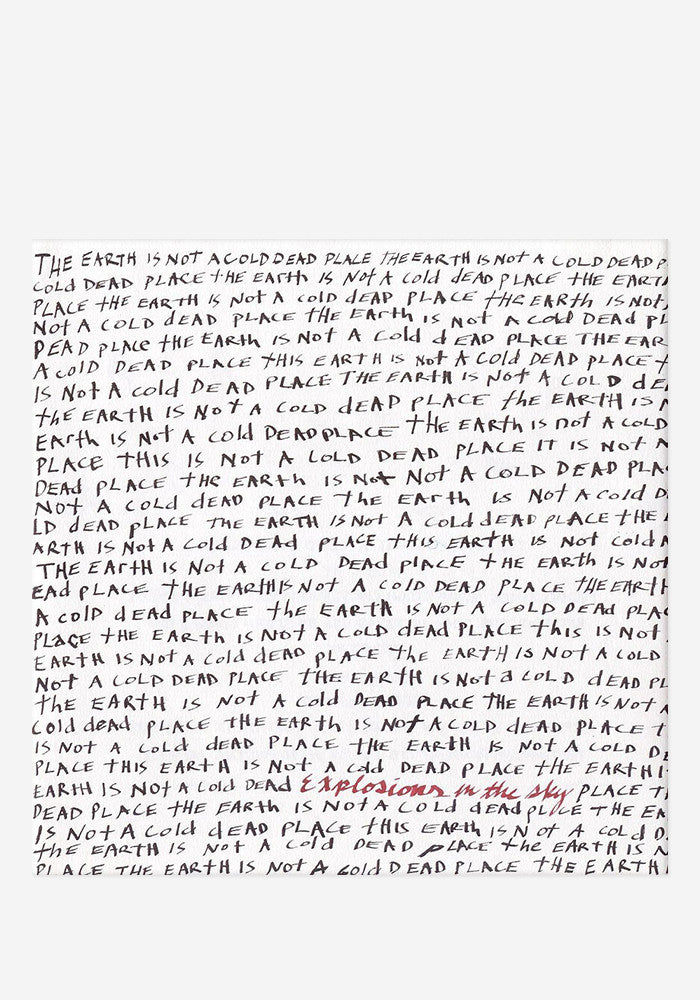 THE EARTH IS NOT A COLD DEAD PLACE THE EARTH IS NOT A COLD DEAD P
COLD DEAD PLACE tHE EARth IS Not A Cold dEAD PLACE tHE EARTH
PLACE tHE EARTH IS Not A Cold dEAD PLACE tHE EARTH IS Not
Not A COLD dEAD PLACE tHE EARth IS Not A Cold DEAD PL
DEAD PLAcE tHE EARTH IS NOt A Cold dEAD PLACE THE EAR
A cOlD DEAD PLACE THIS EARTH IS Not A COld DEAD PLACE t
IS Not A cold DEAD PLACE THE EARTH IS Not A COLD dE
thE EARTH IS Not A COLD dEAD PLACE thE EARTH IS N
EARth IS Not A Cold DEAD PLACE tHE EARTH IS not A COLD
PLACE THIS IS Not A COLD DEAD PLACE IT IS Not A
DEAd PLACE THE EARTH IS Not Not A COLD DEAD PLA
Not A Cold dEAD PLACE tHE EARth IS Not A Cold D
LD dEAD pLACE THE EARTH IS Not A Cold dEAD PLACE tHE
ARTH IS Not A Cold DEAd PLACE tHIS EARth IS Not Cold A
THE EARtH IS Not A COLD DEAd PlACE tHE EARth IS Not
EAd PLACE tHE EARTH IS NOT A Cold DEAD PLACE tHE EARtH
A COlD dEAD PLACE thE EARth IS Not A COLD DEAd PLA
PLACE tHE EARth IS Not A COLD dEAd PLACE this IS Not
EARTH IS Not A Cold dEAD PLACE tHE EARTH IS Not A COLD
Not A COLD DEAD PLACE THE EARTH IS Not a COLD dEAD PL
thE EARTH IS Not A Cold DEAD PLACE THE EARTH IS Not A
Cold dEAD PLACE tHE EARth IS Not A COLD dEAD PLACE T
IS Not A Cold dEAD PLACE tHE EARtH IS Not A COLD DE
PLACE THIS EARTH IS Not A Cold DEAD PLACE tHE EARtH I
EARTH IS Not A Cold DEAD Explosions in the sky PLACE T
DEAD PLACE tHE EARTH IS Not A COLD dEAd PLACE tHE EA
IS Not A Cold dEAD PLACE tHIS EARTH IS Not A COLD D
thE EARTH IS Not A Cold DEAD PLACE tHE EARTH IS N
PLACE THE EARTH IS Not A Cold DEAD PLACE THE EARTH